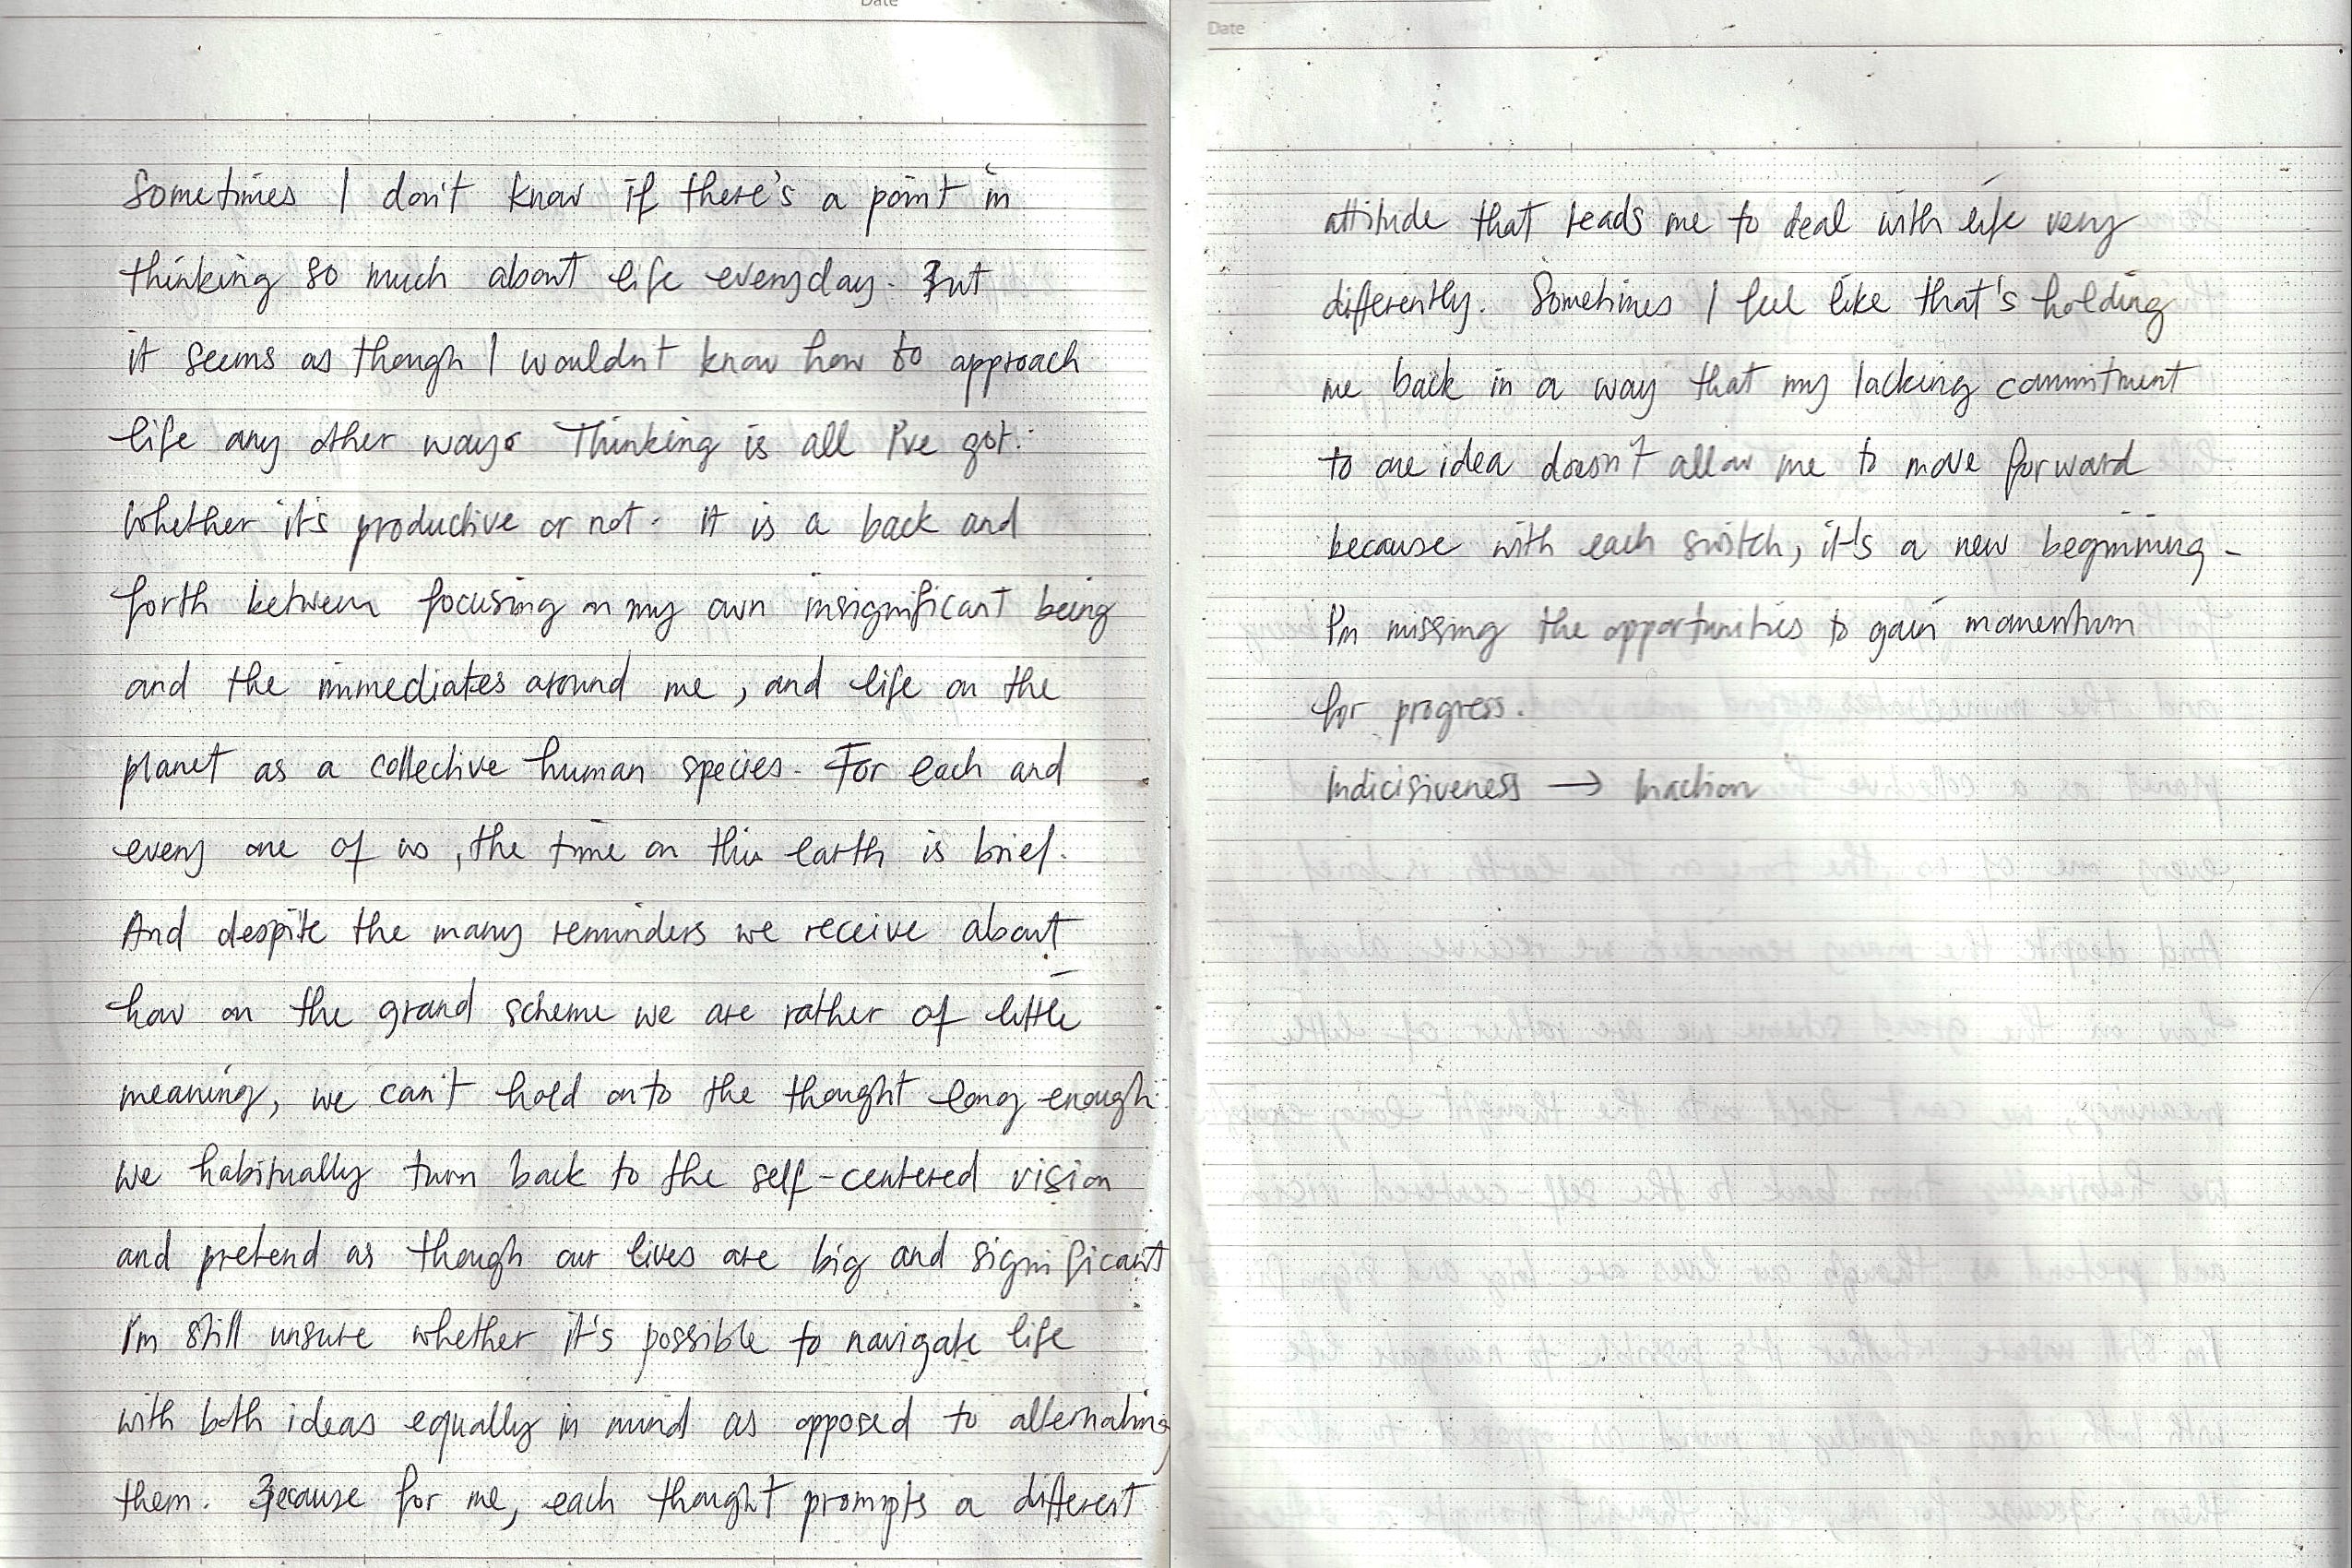 Date
Sometimes I don't know if there's a point in
thinking so much about life everyday. But
it seems as though I wouldn't know how to approach
life any other way. Thinking is all I've got.
Whether it's productive or not. it is a back and
forth between focusing on my own insignificant being
and the immediates around me, and life on the
planet as a collective human species. For each and
every one of us, the time on this earth is brief.
And despite the many reminders we receive about
how on the grand scheme we are rather of little
meaning, we can't hold onto the thought long enough.
We habitually turn back to the self-centered vision
and pretend as though our lives are big and significant
I'm still unsure whether it's possible to navigate life
with both ideas equally in mind as opposed to alternating
them. Because for me, each thought prompts a different
Date
attitude that leads me to deal with life very
differently. Sometimes I feel like that's holding
me back in a way that my lacking commitment
to one idea doesn't allow me to move forward
because with each switch, it's a new beginning -
I'm missing the opportunities to gain momentum
for progress.
Indicisiveness → Inaction